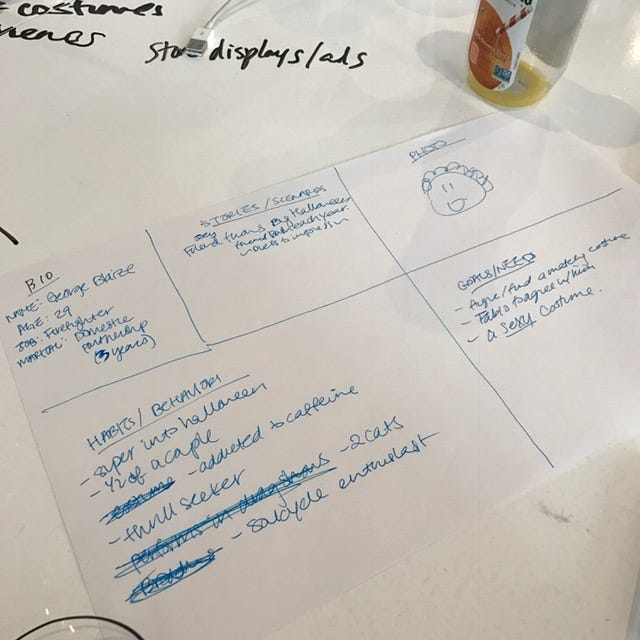 costumes
store displays/ads
BIO
NAME: George Blaize
AGE: 29
JOB: Firefighter
MARITAL: Domestic
Partnership
(3 years)
STORIES/SCENARIOS
Friend throws Big Halloween
themed Bash each year.
wants to impress
PHOTO
GOALS/NEED
- Agree/find a matching costume
- Pablo to agree w/ him
- a sexy costume.
HABITS/BEHAVIORS
- super into halloween
- 1/2 of a couple
- addicted to caffeine
- thrill seeker
- performs in drag shows - 2 cats
- soulcycle enthusiast